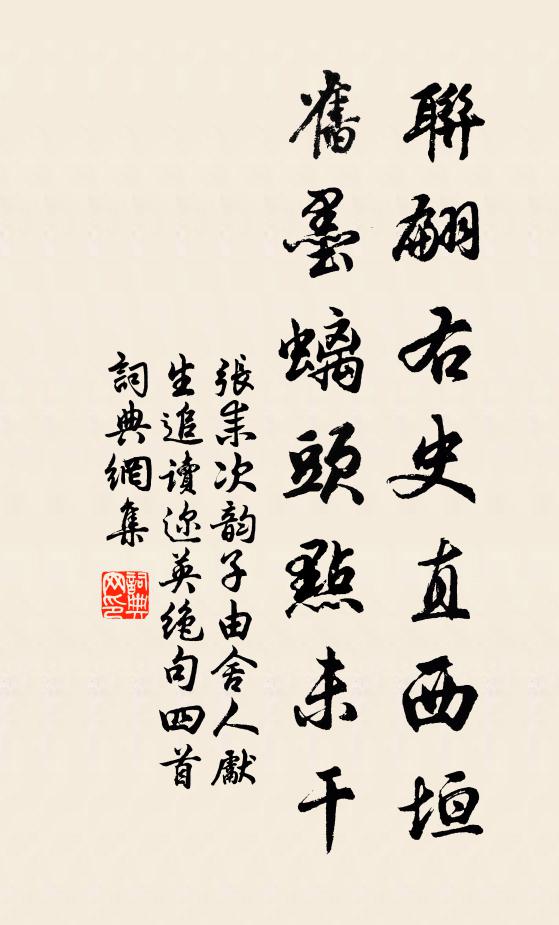 聯翩右史直西垣
舊墨螭頭點未干
張耒次韵子由舍人獻
生追讀邇英絶句四首
詞典網集
詞典
网印